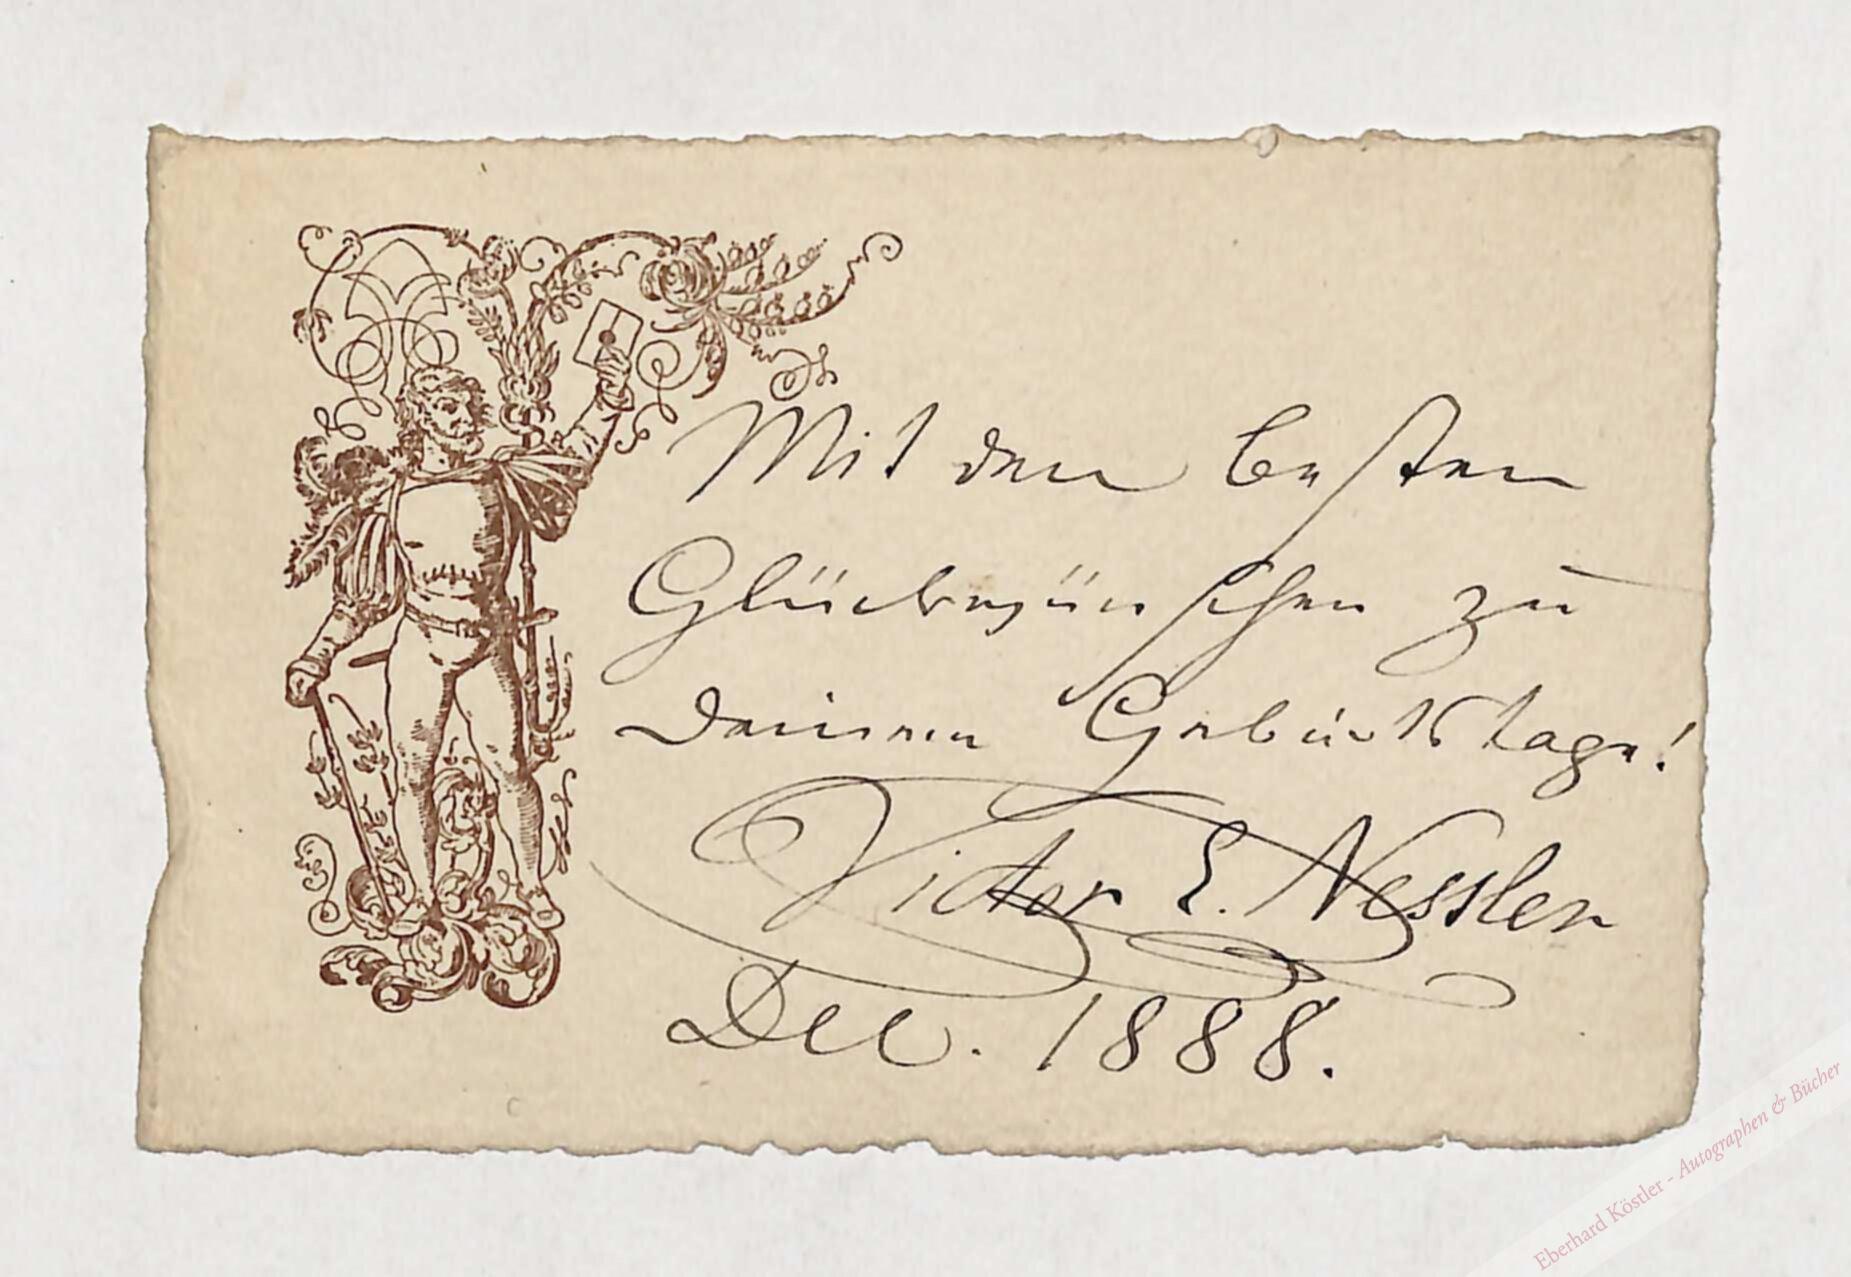 Mit den besten
Glückwünschen zu
Deinem Geburtstage!
Victor E. Nessler
Dec. 1888.
Eberhard Köstler - Autographen & Bücher